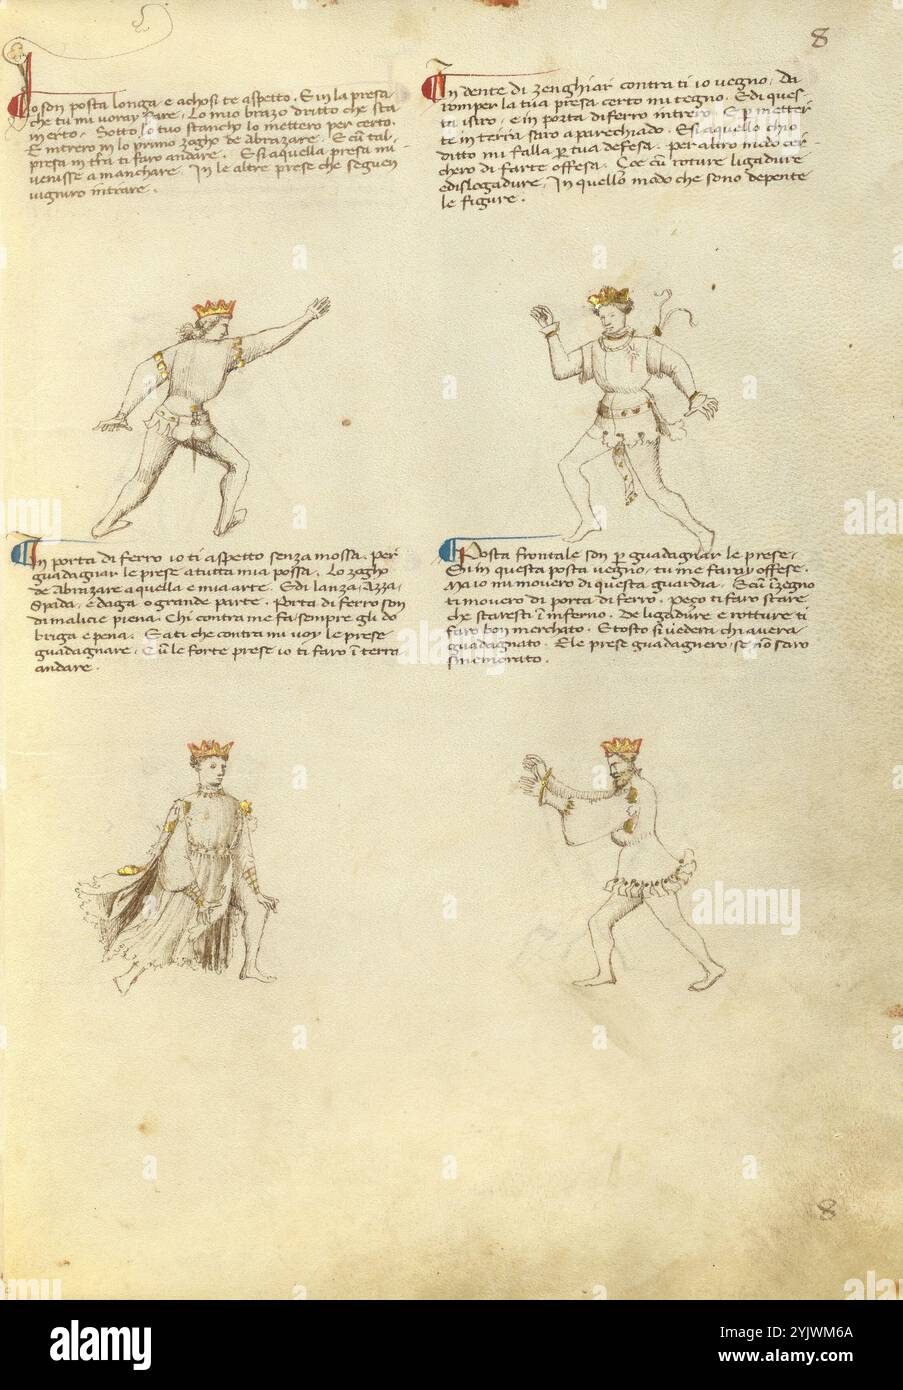 8
Io son posta longa e achosi te aspetto. E in la presa
che tu mi voray fare. Lo mio brazo dritto che sta
in erto. Sotto lo tuo stancho lo mettero per certo.
E intrero in lo primo zogho de abrazare. E cu tal
presa in tra ti faro andare. E si aquella presa mi
venisse a manchare. In le altre prese che seguen
vigniro intrare.
In dente di zenghiar contra ti io vegno. Da
romper la tua presa certo mi tegno. E di ques
ta isiro, e in porta di ferro intrero. E p metter
te in terra saro aparechiado. E si aquello ch'io
ditto mi falla p tua defesa. per altro modo cer
chero di farte offesa. Çoe cu roture ligadure
e dislogadure. In quello modo che sono depente
le figure.
In porta di ferro io ti aspetto senza mossa. per
guadagnar le prese a tutta mia possa. Lo zogho
de Abrazare aquella e mia arte. E di lanza, Azza,
Spada, e daga o grande parte. Porta di ferro son
di malicie piena. Chi contra me fa sempre gli do
briga e pena. E a ti che contra mi voy le prese
guadagnare. Cu le forte prese io ti faro i terra
andare.
Posta frontale son p guadagnar le prese.
Si in questa posta vegno, tu me faray offese.
Ma io mi movero di questa guardia. E cu i zegno
ti movero di porta di ferro. Peço ti faro stare
che staresti i inferno. De ligadure e rotture ti
faro bon merchato. E tosto si vedera chi avera
guadagnato. E le prese guadagnero, se no saro
smemorato.
8
alamy
Image ID: 2YJWM6A
www.alamy.com